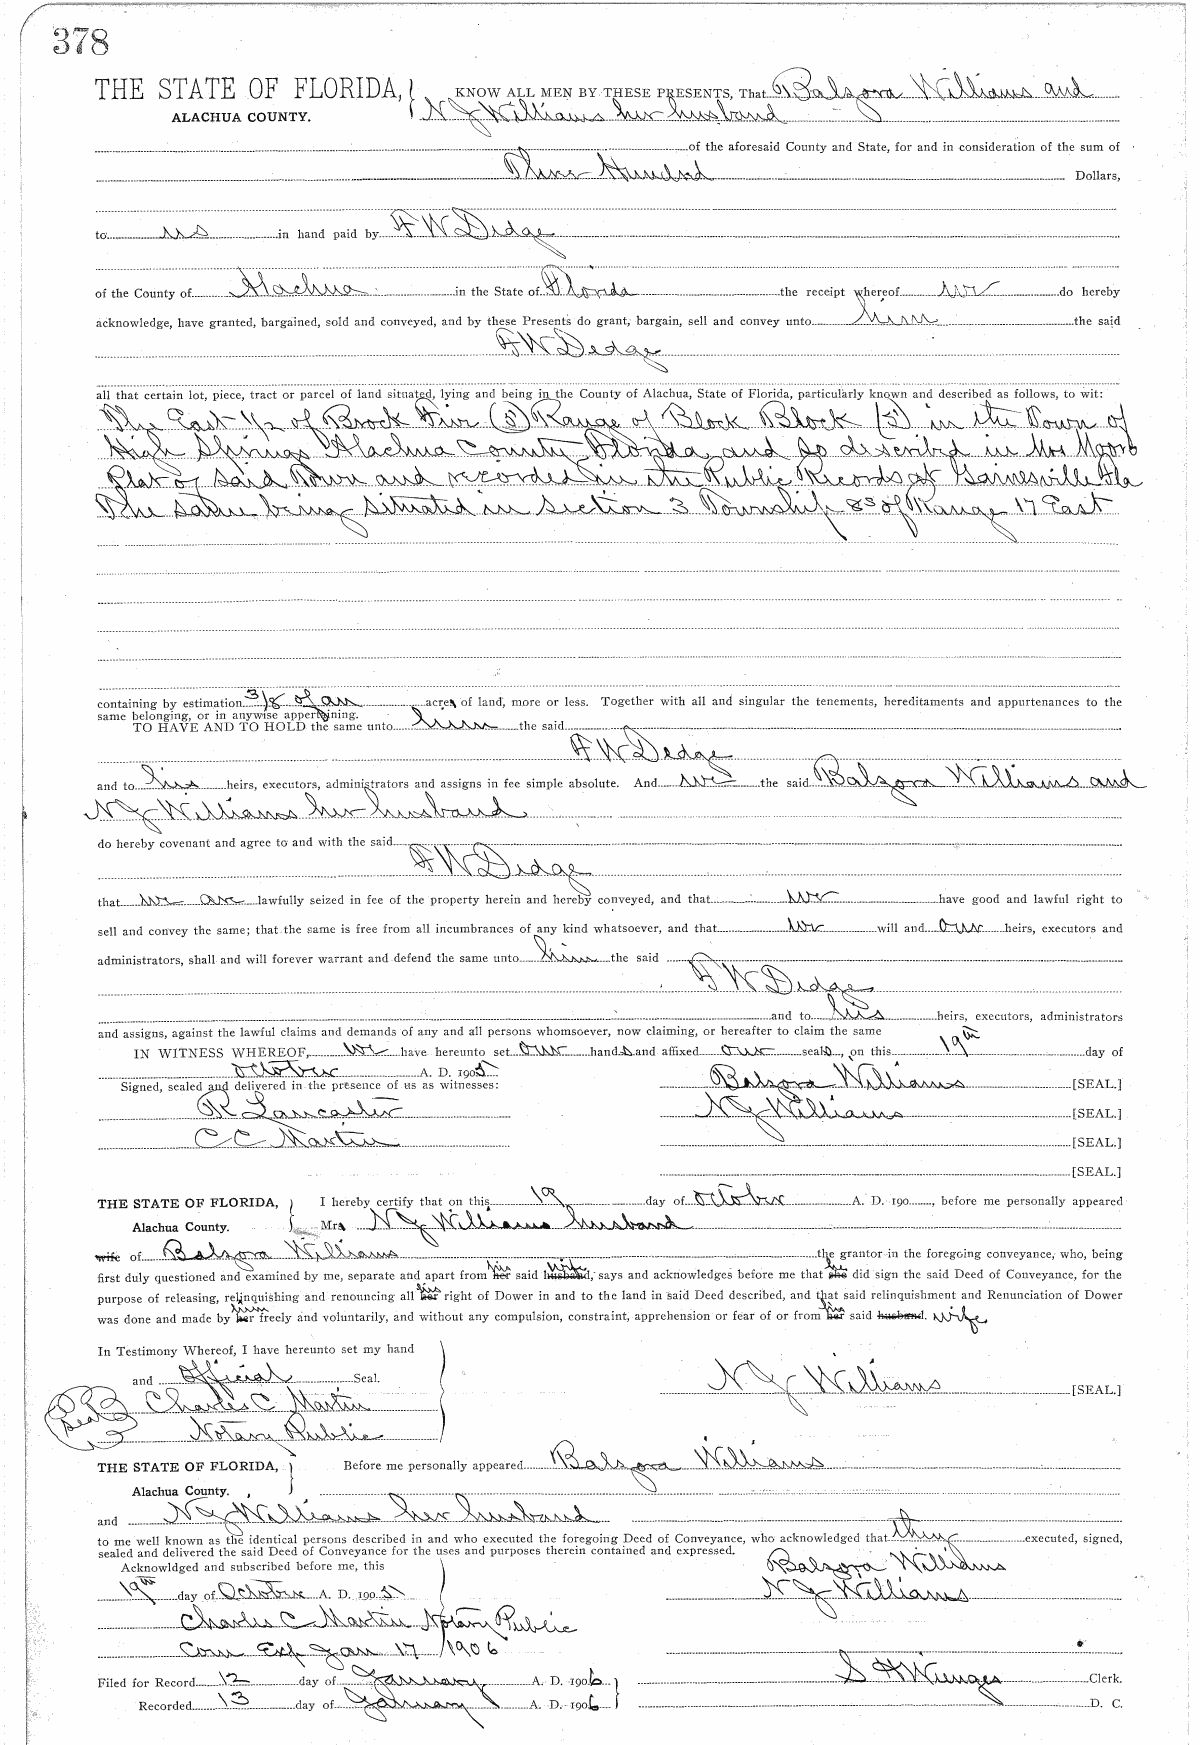 378
THE STATE OF FLORIDA, KNOW ALL MEN BY THESE PRESENTS, That Balzora Williams and
ALACHUA COUNTY. N J Williams her husband
of the aforesaid County and State, for and in consideration of the sum of
Three Hundred Dollars,
to us in hand paid by F W Dedge
of the County of Alachua in the State of Florida the receipt whereof we do hereby
acknowledge, have granted, bargained, sold and conveyed, and by these Presents do grant, bargain, sell and convey unto him the said
F W Dedge
all that certain lot, piece, tract or parcel of land situated, lying and being in the County of Alachua, State of Florida, particularly known and described as follows, to wit:
The East 1/2 of Brock Five (5) Range of Block Block (5) in the Town of
High Springs Alachua County Florida and so described in Mrs Moors
Plat of said Town and recorded in the Public Records at Gainesville Fla
The same being situated in Section 3 Township 8 S of Range 17 East
containing by estimation 3/8 of an acre of land, more or less. Together with all and singular the tenements, hereditaments and appurtenances to the
same belonging, or in anywise appertaining.
TO HAVE AND TO HOLD the same unto him the said
F W Dedge
and to his heirs, executors, administrators and assigns in fee simple absolute. And we the said Balzora Williams and
N J Williams her husband
do hereby covenant and agree to and with the said
F W Dedge
that we are lawfully seized in fee of the property herein and hereby conveyed, and that we have good and lawful right to
sell and convey the same; that the same is free from all incumbrances of any kind whatsoever, and that we will and our heirs, executors and
administrators, shall and will forever warrant and defend the same unto him the said
F W Dedge
and to his heirs, executors, administrators
and assigns, against the lawful claims and demands of any and all persons whomsoever, now claiming, or hereafter to claim the same
IN WITNESS WHEREOF, we have hereunto set our hands and affixed our seals, on this 19th day of
October A. D. 1905
Signed, sealed and delivered in the presence of us as witnesses: Balzora Williams [SEAL.]
R Lancaster N J Williams [SEAL.]
C C Martin [SEAL.]
[SEAL.]
THE STATE OF FLORIDA, I hereby certify that on this 19 day of October A. D. 190 , before me personally appeared
Alachua County. Mr N J Williams husband
wife of Balzora Williams the grantor in the foregoing conveyance, who, being
first duly questioned and examined by me, separate and apart from her his said husband wife, says and acknowledges before me that she he did sign the said Deed of Conveyance, for the
purpose of releasing, relinquishing and renouncing all her his right of Dower in and to the land in said Deed described, and that said relinquishment and Renunciation of Dower
was done and made by her him freely and voluntarily, and without any compulsion, constraint, apprehension or fear of or from her his said husband. wife
In Testimony Whereof, I have hereunto set my hand
and Official Seal. N J Williams [SEAL.]
Seal Charles C Martin
Notary Public
THE STATE OF FLORIDA, Before me personally appeared Balzora Williams
Alachua County.
and N J Williams her husband
to me well known as the identical persons described in and who executed the foregoing Deed of Conveyance, who acknowledged that they executed, signed,
sealed and delivered the said Deed of Conveyance for the uses and purposes therein contained and expressed.
Acknowldged and subscribed before me, this Balzora Williams
19th day of October A. D. 1905 N J Williams
Charles C Martin Notary Public
Com Exp Jan 17 1906
Filed for Record 12 day of January A. D. 1906 S H Wienges Clerk.
Recorded 13 day of January A. D. 1906 D. C.